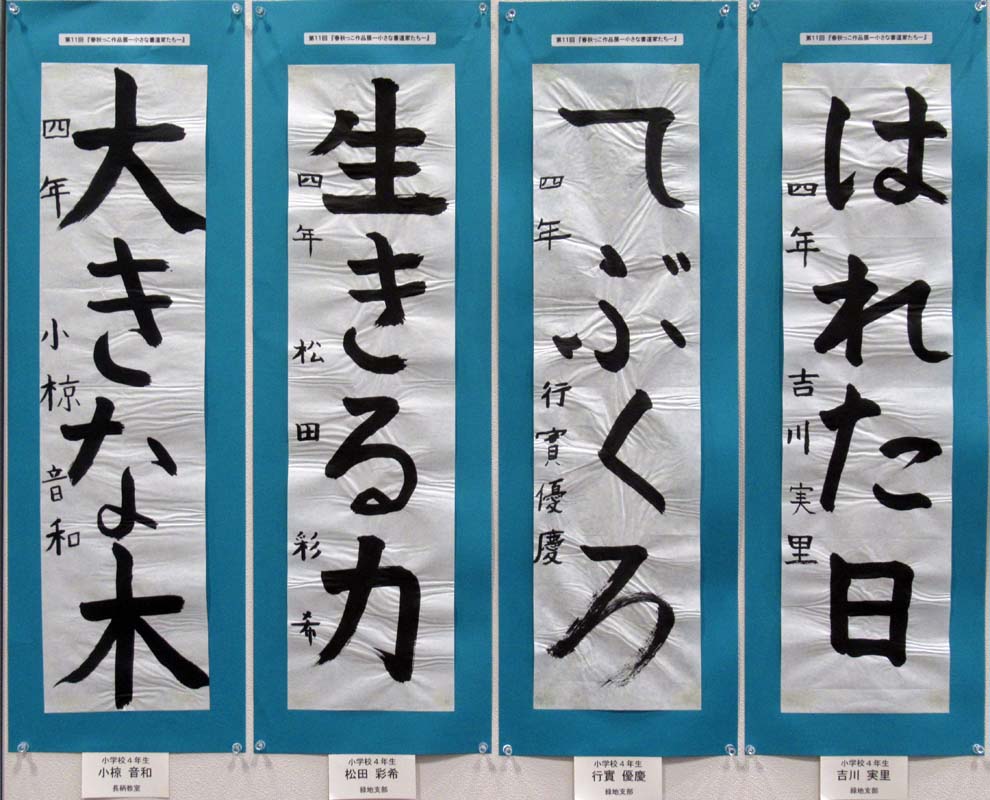 第11回『春秋っこ作品展ー小さな書道家たちー』
大きな木
四年 小椋音和
小学校4年生
小椋 音和
長柄教室
第11回『春秋っこ作品展ー小さな書道家たちー』
生きる力
四年 松田彩希
小学校4年生
松田 彩希
緑地支部
第11回『春秋っこ作品展ー小さな書道家たちー』
てぶくろ
四年 行實優慶
小学校4年生
行實 優慶
緑地支部
第11回『春秋っこ作品展ー小さな書道家たちー』
はれた日
四年 吉川実里
小学校4年生
吉川 実里
緑地支部